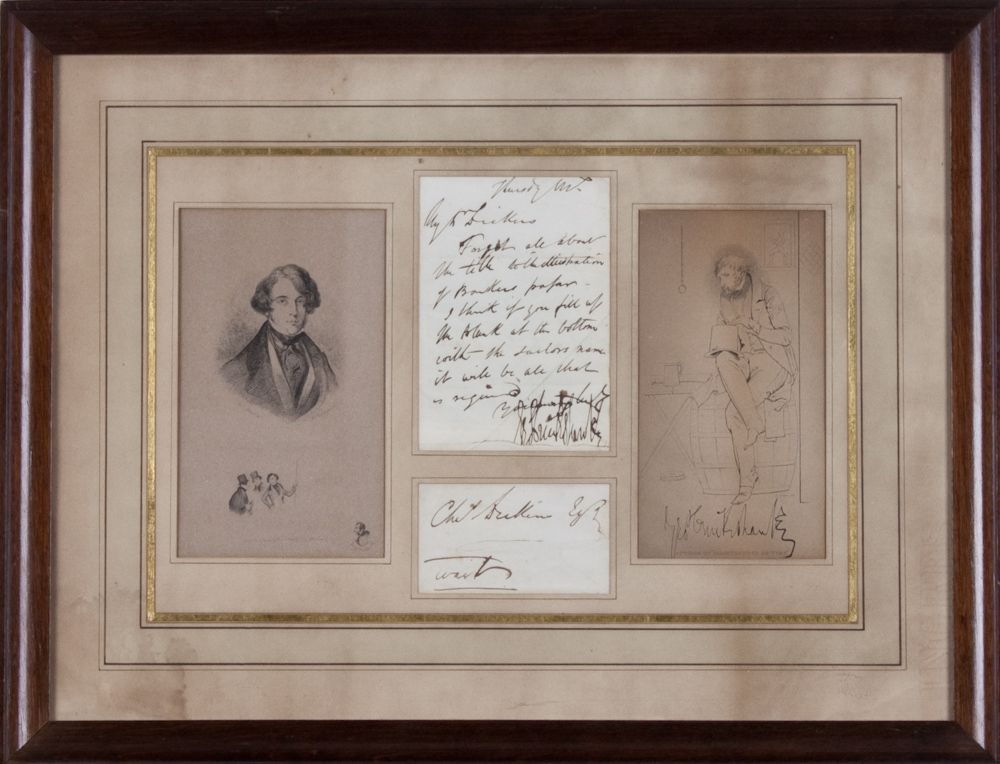 My Dr Dickens
Forget all about
the title to the illustration
of Bonkers
I think if you fill up
the blank at the bottom
with the sailors name
it will be all that
is required
Yours
Geo Cruikshank
Chas Dickens Esqr
Wait
Geo Cruikshank